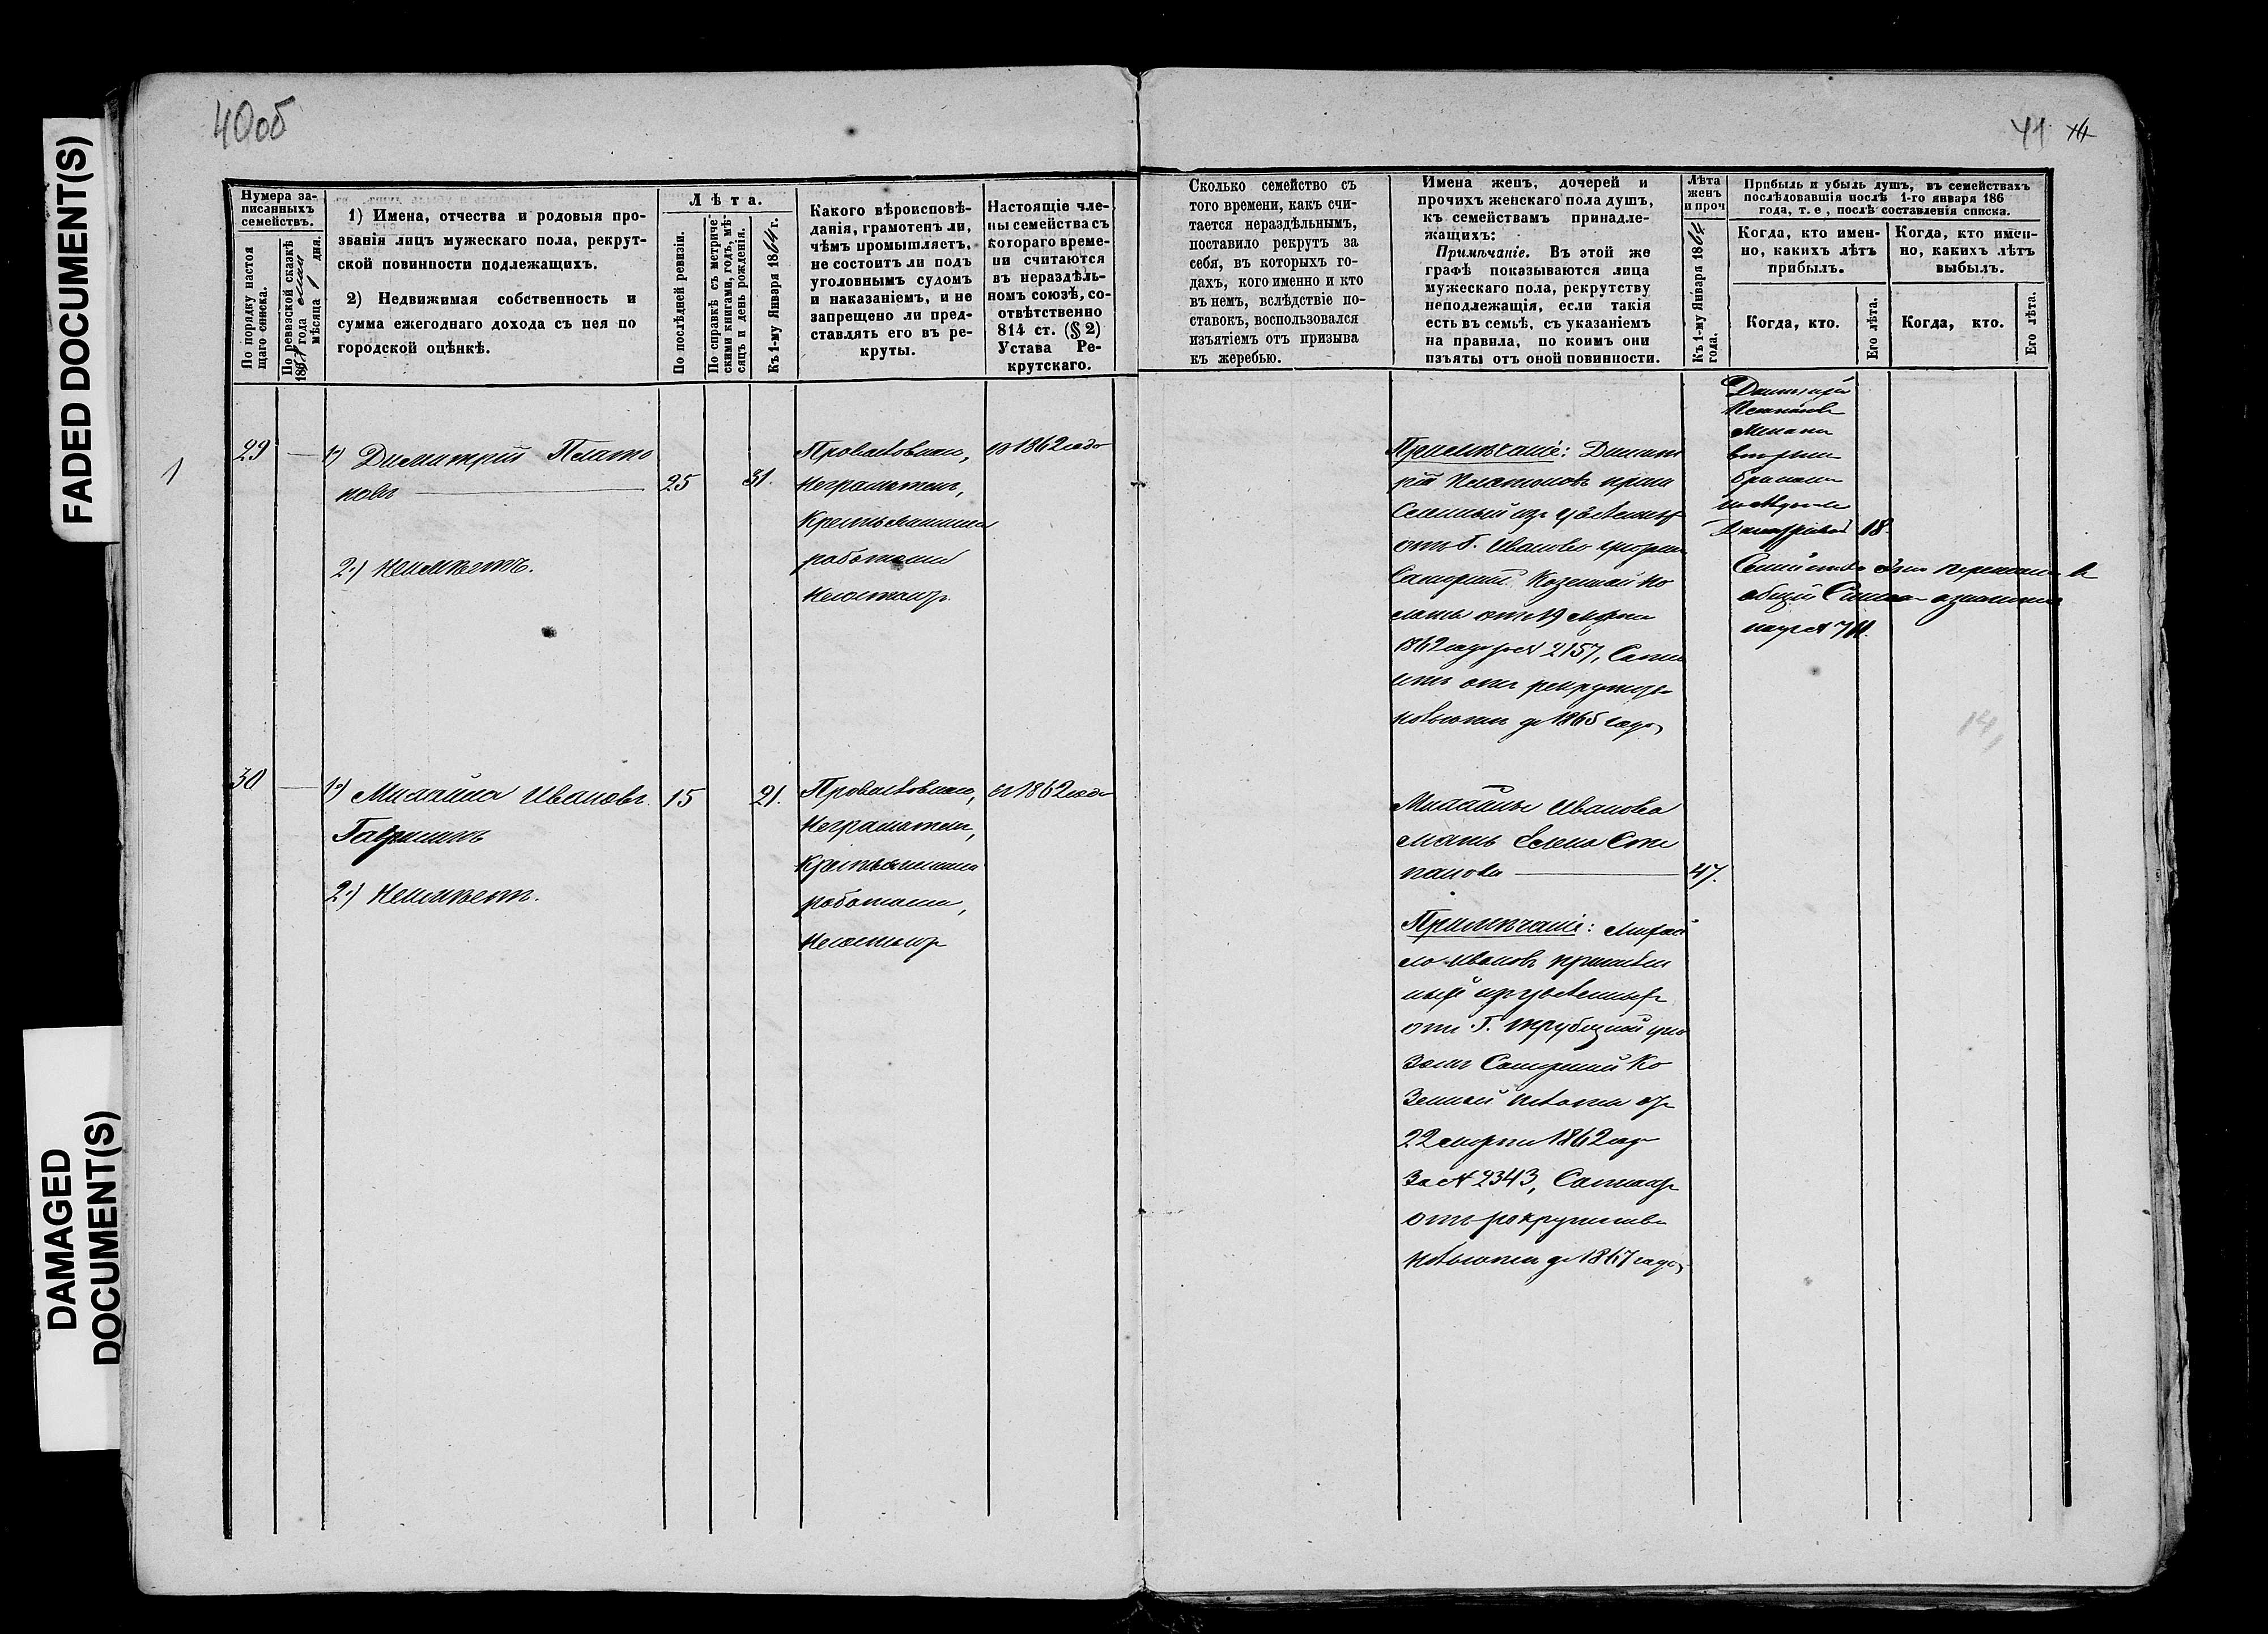 FADED DOCUMENT(S)
DAMAGED
DOCUMENT(S)
40об
Нумера за-
писанныхъ
семействъ.
По порядку настоя
щаго списка.
По ревизской сказкѣ
года
мѣсяца 1 дня.
1) Имена, отчества и родовыя про-
званія лицъ мужескаго пола, рекрут-
ской повинности подлежащихъ.
2) Недвижимая собственность и
сумма ежегоднаго дохода съ нея по
городской оцѣнкѣ.
Лѣта.
По послѣдней ревизіи.
По справкѣ съ метриче
скими книгами, годъ, мѣ
сяцъ и день рожденія.
Къ 1-му Января 1864 г.
Какого вѣроисповѣ-
данія, грамотенъ ли,
чѣмъ промышляетъ,
не состоитъ ли подъ
уголовнымъ судомъ
и наказаніемъ, и не
запрещено ли пред-
ставлять его въ ре-
круты.
Настоящіе чле-
ны семейства съ
котораго време-
ни считаются
въ нераздѣль-
номъ союзѣ, со-
отвѣтственно
814 ст. (§ 2)
Устава Ре-
крутскаго.
1
29 — 1) Димитрій Плато
новъ — 25 31.
2.) Неимѣетъ.
Православнаго,
Неграмотенъ,
Крестьянскими
работами
Несостоитъ
съ 1862 года
30 — 1) Михайла Ивановъ 15 21.
2.) Неимѣетъ.
Православнаго,
Неграмотенъ,
Крестьянскими
работами,
Несостоитъ
съ 1862 года
41
Сколько семейство съ
того времени, какъ счи-
тается нераздѣльнымъ,
поставило рекрутъ за
себя, въ которыхъ го-
дахъ, кого именно и кто
въ немъ, вслѣдствіе по-
ставокъ, воспользовался
изъятіемъ отъ призыва
къ жеребью.
Имена женъ, дочерей и
прочихъ женскаго пола душъ,
къ семействамъ принадле-
жащихъ:
Примѣчаніе. Въ этой же
графѣ показываются лица
мужескаго пола, рекрутству
неподлежащія, если такія
есть въ семьѣ, съ указаніемъ
на правила, по коимъ они
изъяты отъ оной повинности.
Лѣта
женъ
и проч
Къ 1-му Января 186
года.
Прибыль и убыль душъ, въ семействахъ
послѣдовавшія послѣ 1-го января 186
года, т. е, послѣ составленія списка.
Когда, кто имен-
но, какихъ лѣтъ
прибылъ.
Когда, кто имен-
но, какихъ лѣтъ
выбылъ.
Когда, кто.
Его лѣта.
Когда, кто.
Его лѣта.
Примѣчаніе: Димит
рій Платоновъ причи
сленный изъ уволенныхъ
отъ Г. Иванова указомъ
Самарской Казенной Па
латы отъ 19 Марта
1862 года за № 2157,
отъ рекрутской
повинности до 1865 года
Михайлы Иванова
мать Елена Сте
панова — 47.
Примѣчаніе: Михай
ло Ивановъ причислен
ный изъ уволенныхъ
отъ Г. Трубецкой ука
зомъ Самарской Ка
зенной Палаты отъ
22 Марта 1862 года
За № 2343,
отъ рекрутской
повинности до 1867 года
Дмитрій
Платоновъ
вторымъ
бракомъ
18.
Семейство это переписано въ
общій Списокъ
14,